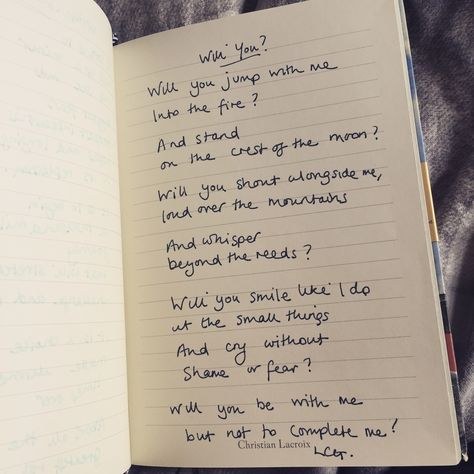 Will You?
Will you jump with me
Into the fire?
And stand
on the crest of the moon?
Will you shout alongside me,
loud over the mountains
And whisper
beyond the reeds?
Will you smile like I do
at the small things
And cry without
Shame or fear?
Will you be with me
but not to complete me!
Christian Lacroix
LCG.